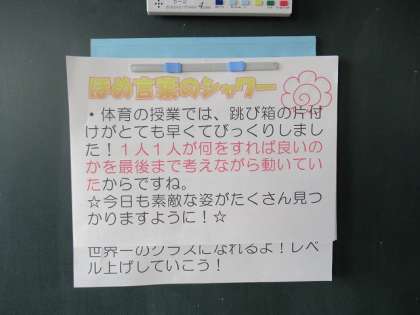 ほめ言葉のシャワー
・体育の授業では、跳び箱の片付
けがとても早くてびっくりしまし
た！１人１人が何をすれば良いの
かを最後まで考えながら動いてい
たからですね。
☆今日も素敵な姿がたくさん見つ
かりますように！☆
世界一のクラスになれるよ！レベ
ル上げしていこう！